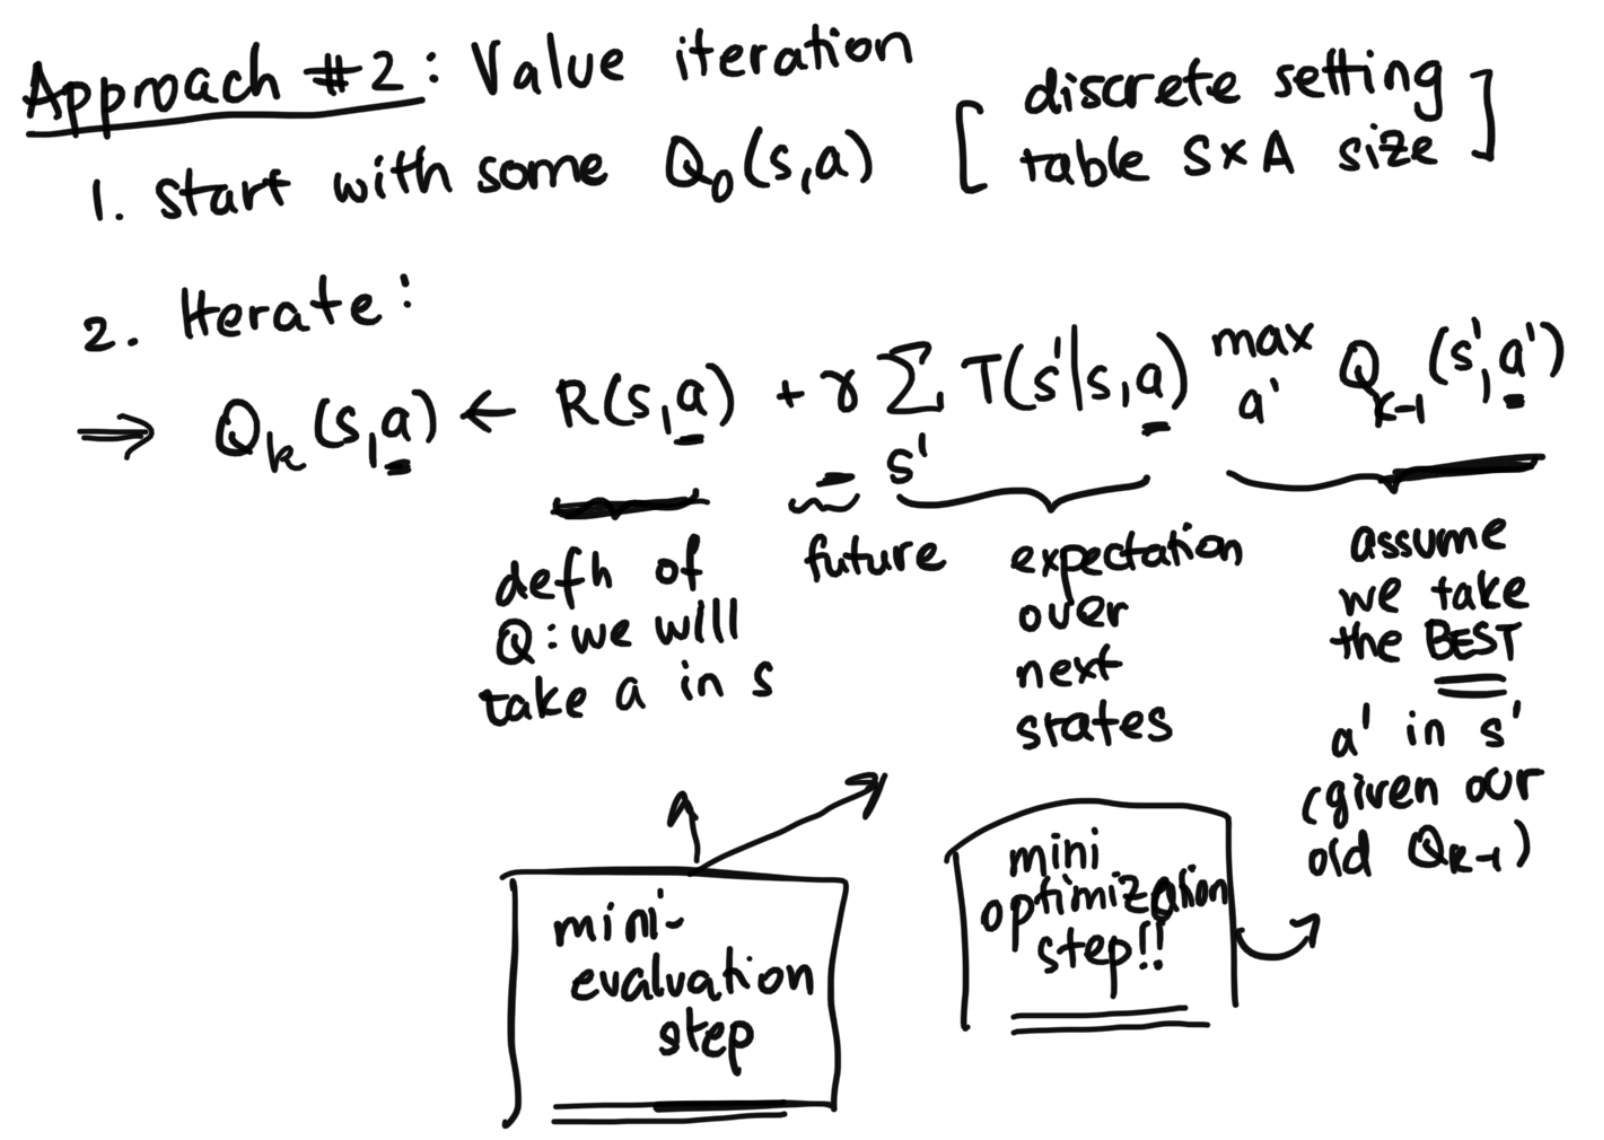 Approach #2: Value iteration
1. start with some Q₀(s,a) [discrete setting
table S×A size]
2. Iterate:
⇒ Qₖ(s,a) ← R(s,a) + γ Σ_s' T(s'|s,a) max_a' Qₖ₋₁(s',a')
defn of
Q: we will
take a in s
future
expectation
over
next
states
assume
we take
the BEST
a' in s'
(given our
old Qₖ₋₁)
mini-
evaluation
step
mini
optimization
step!!